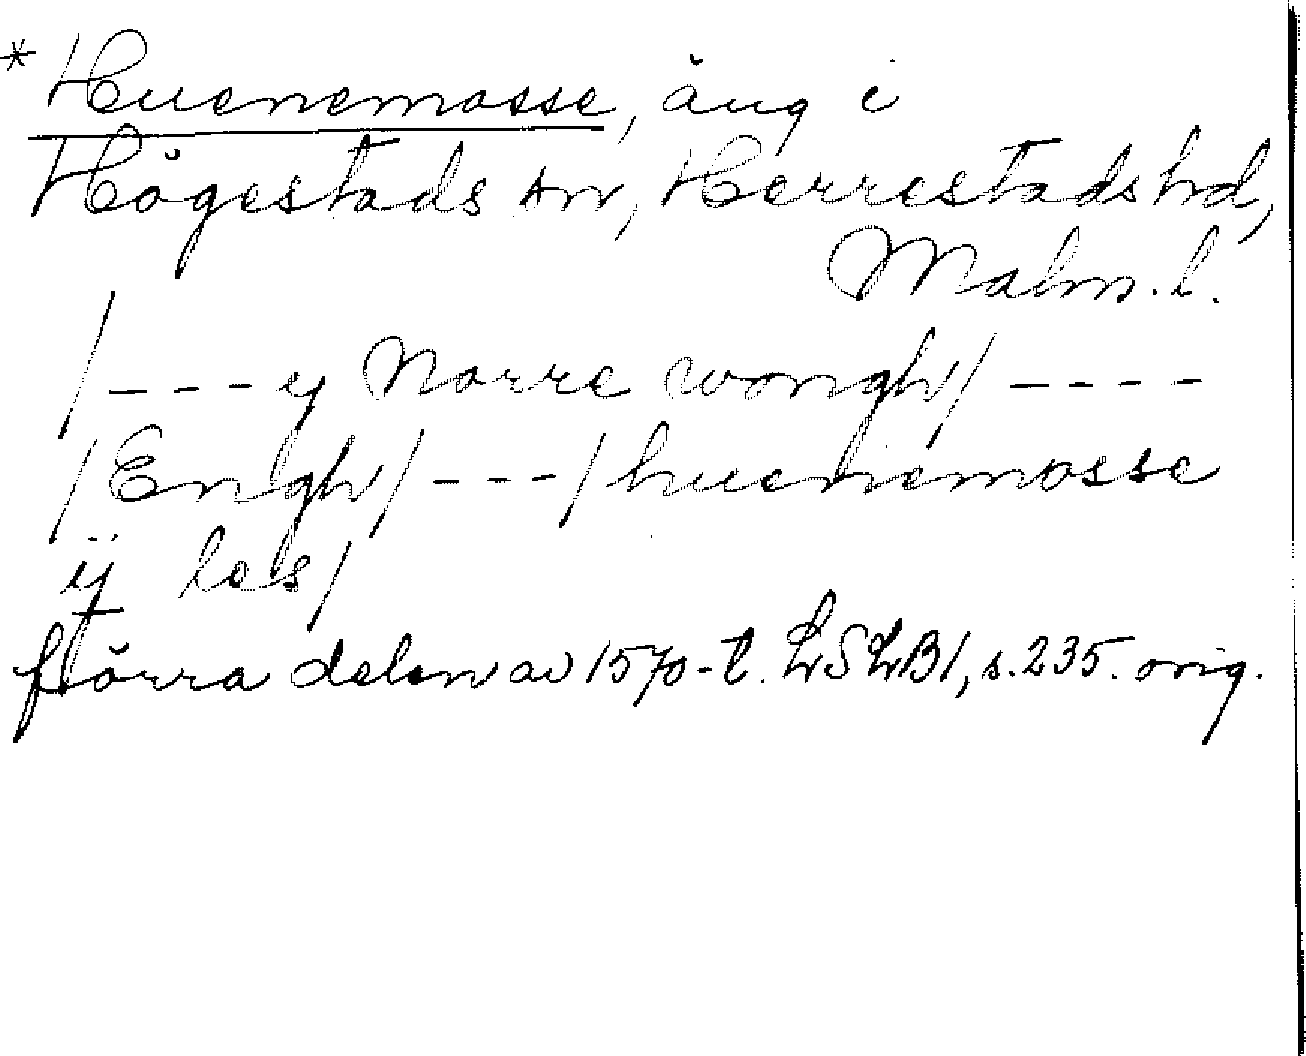 * Huenemosse, äng i
Högestads sn, Herrestads hd,
Malm. l.
/---y Norre wongh/----
/Engh/---/huenemosse
ij les/
förra delen av 1570-t. LSLB1, s. 235. orig.